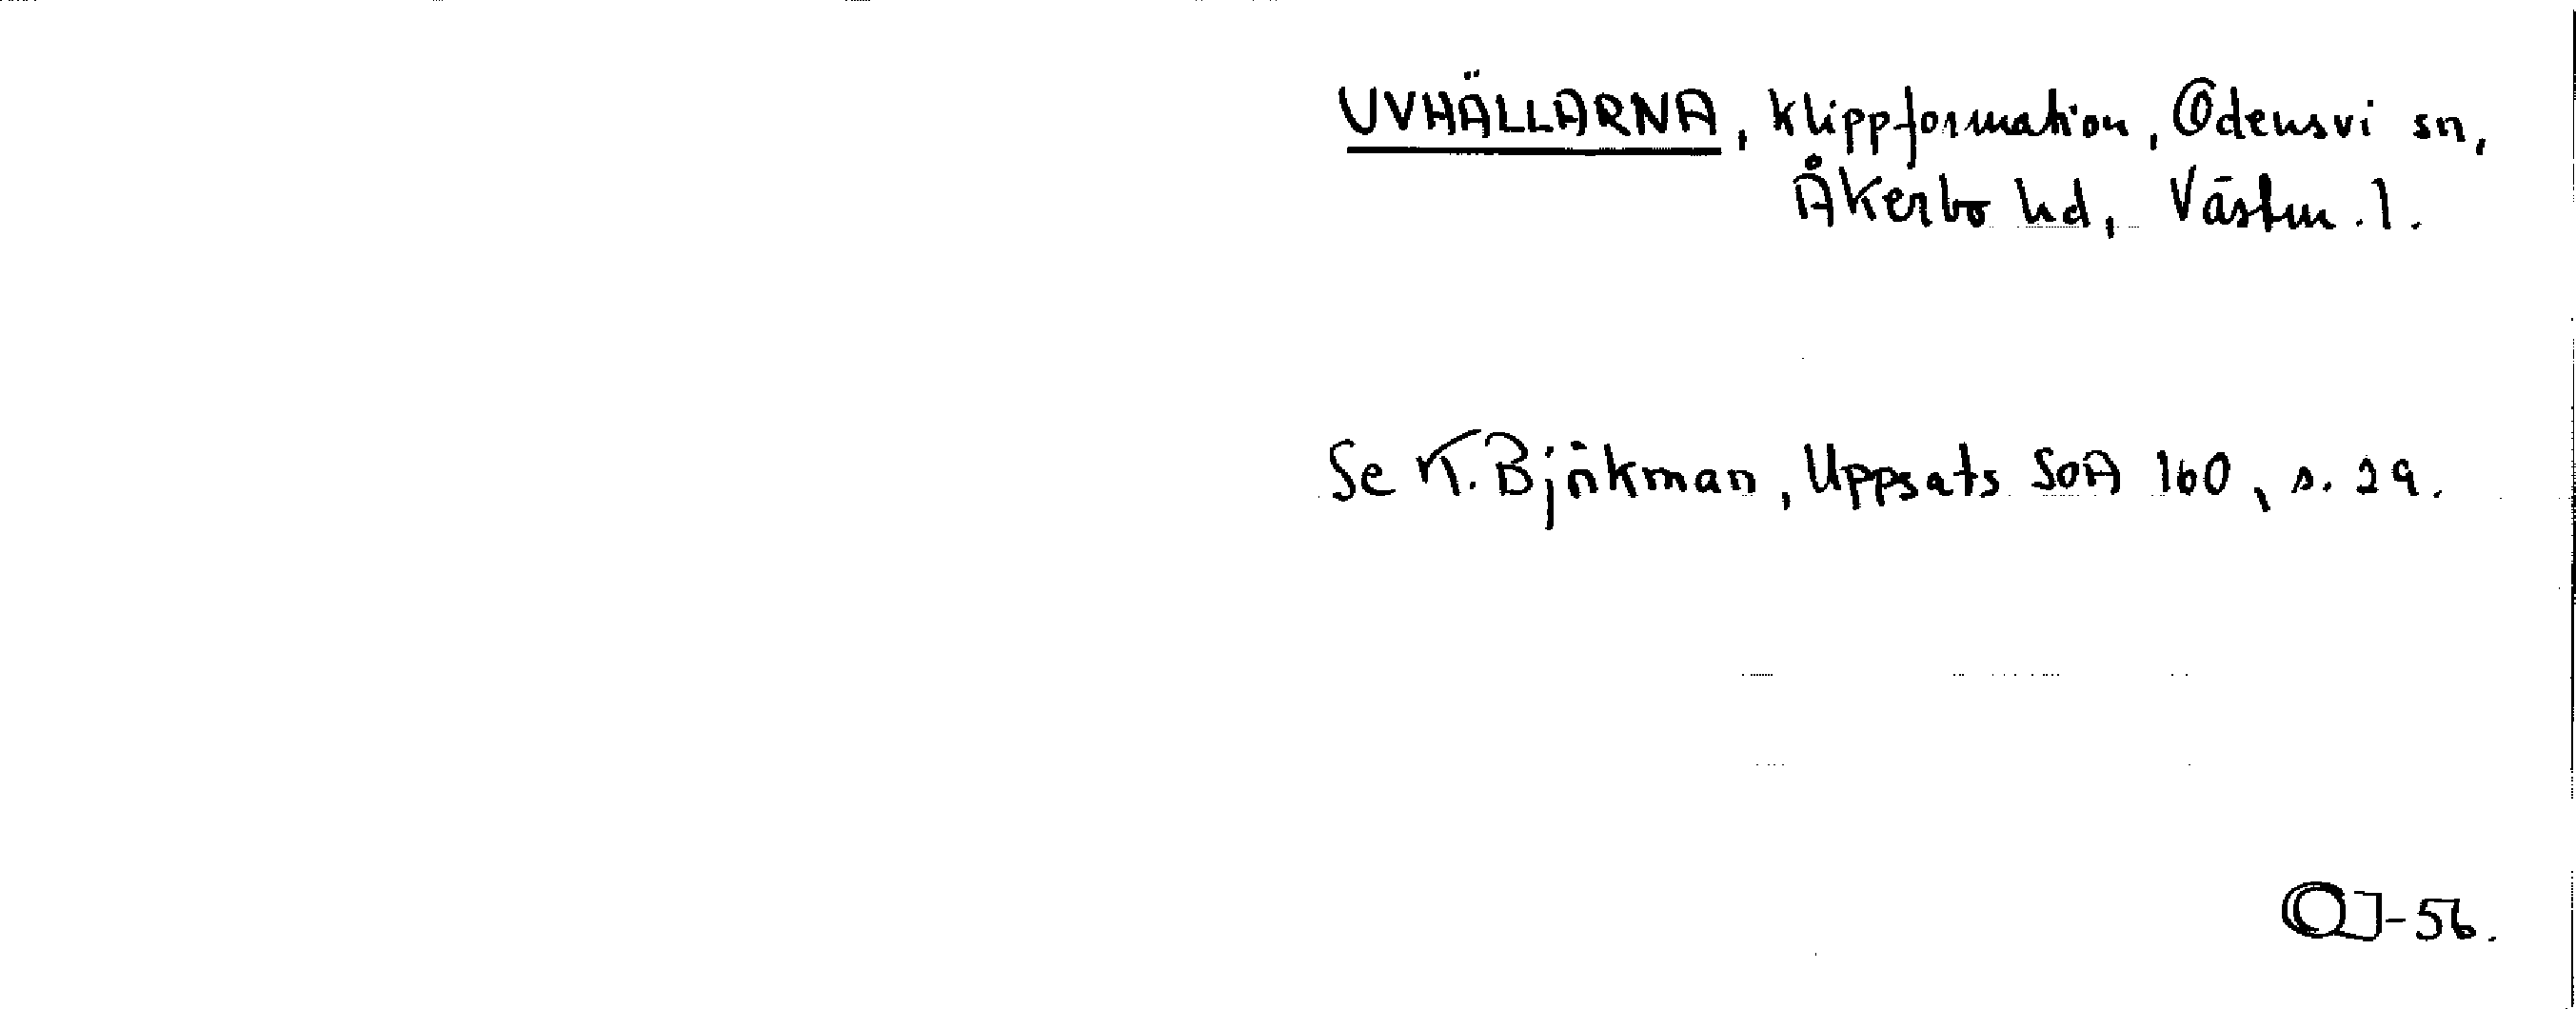 UVHÄLLARNA, Klippformation, Odensvi sn,
Åkerbo hd, Västm. l.
Se K. Björkman, Uppsats SOA 160, s. 29.
OJ-56.